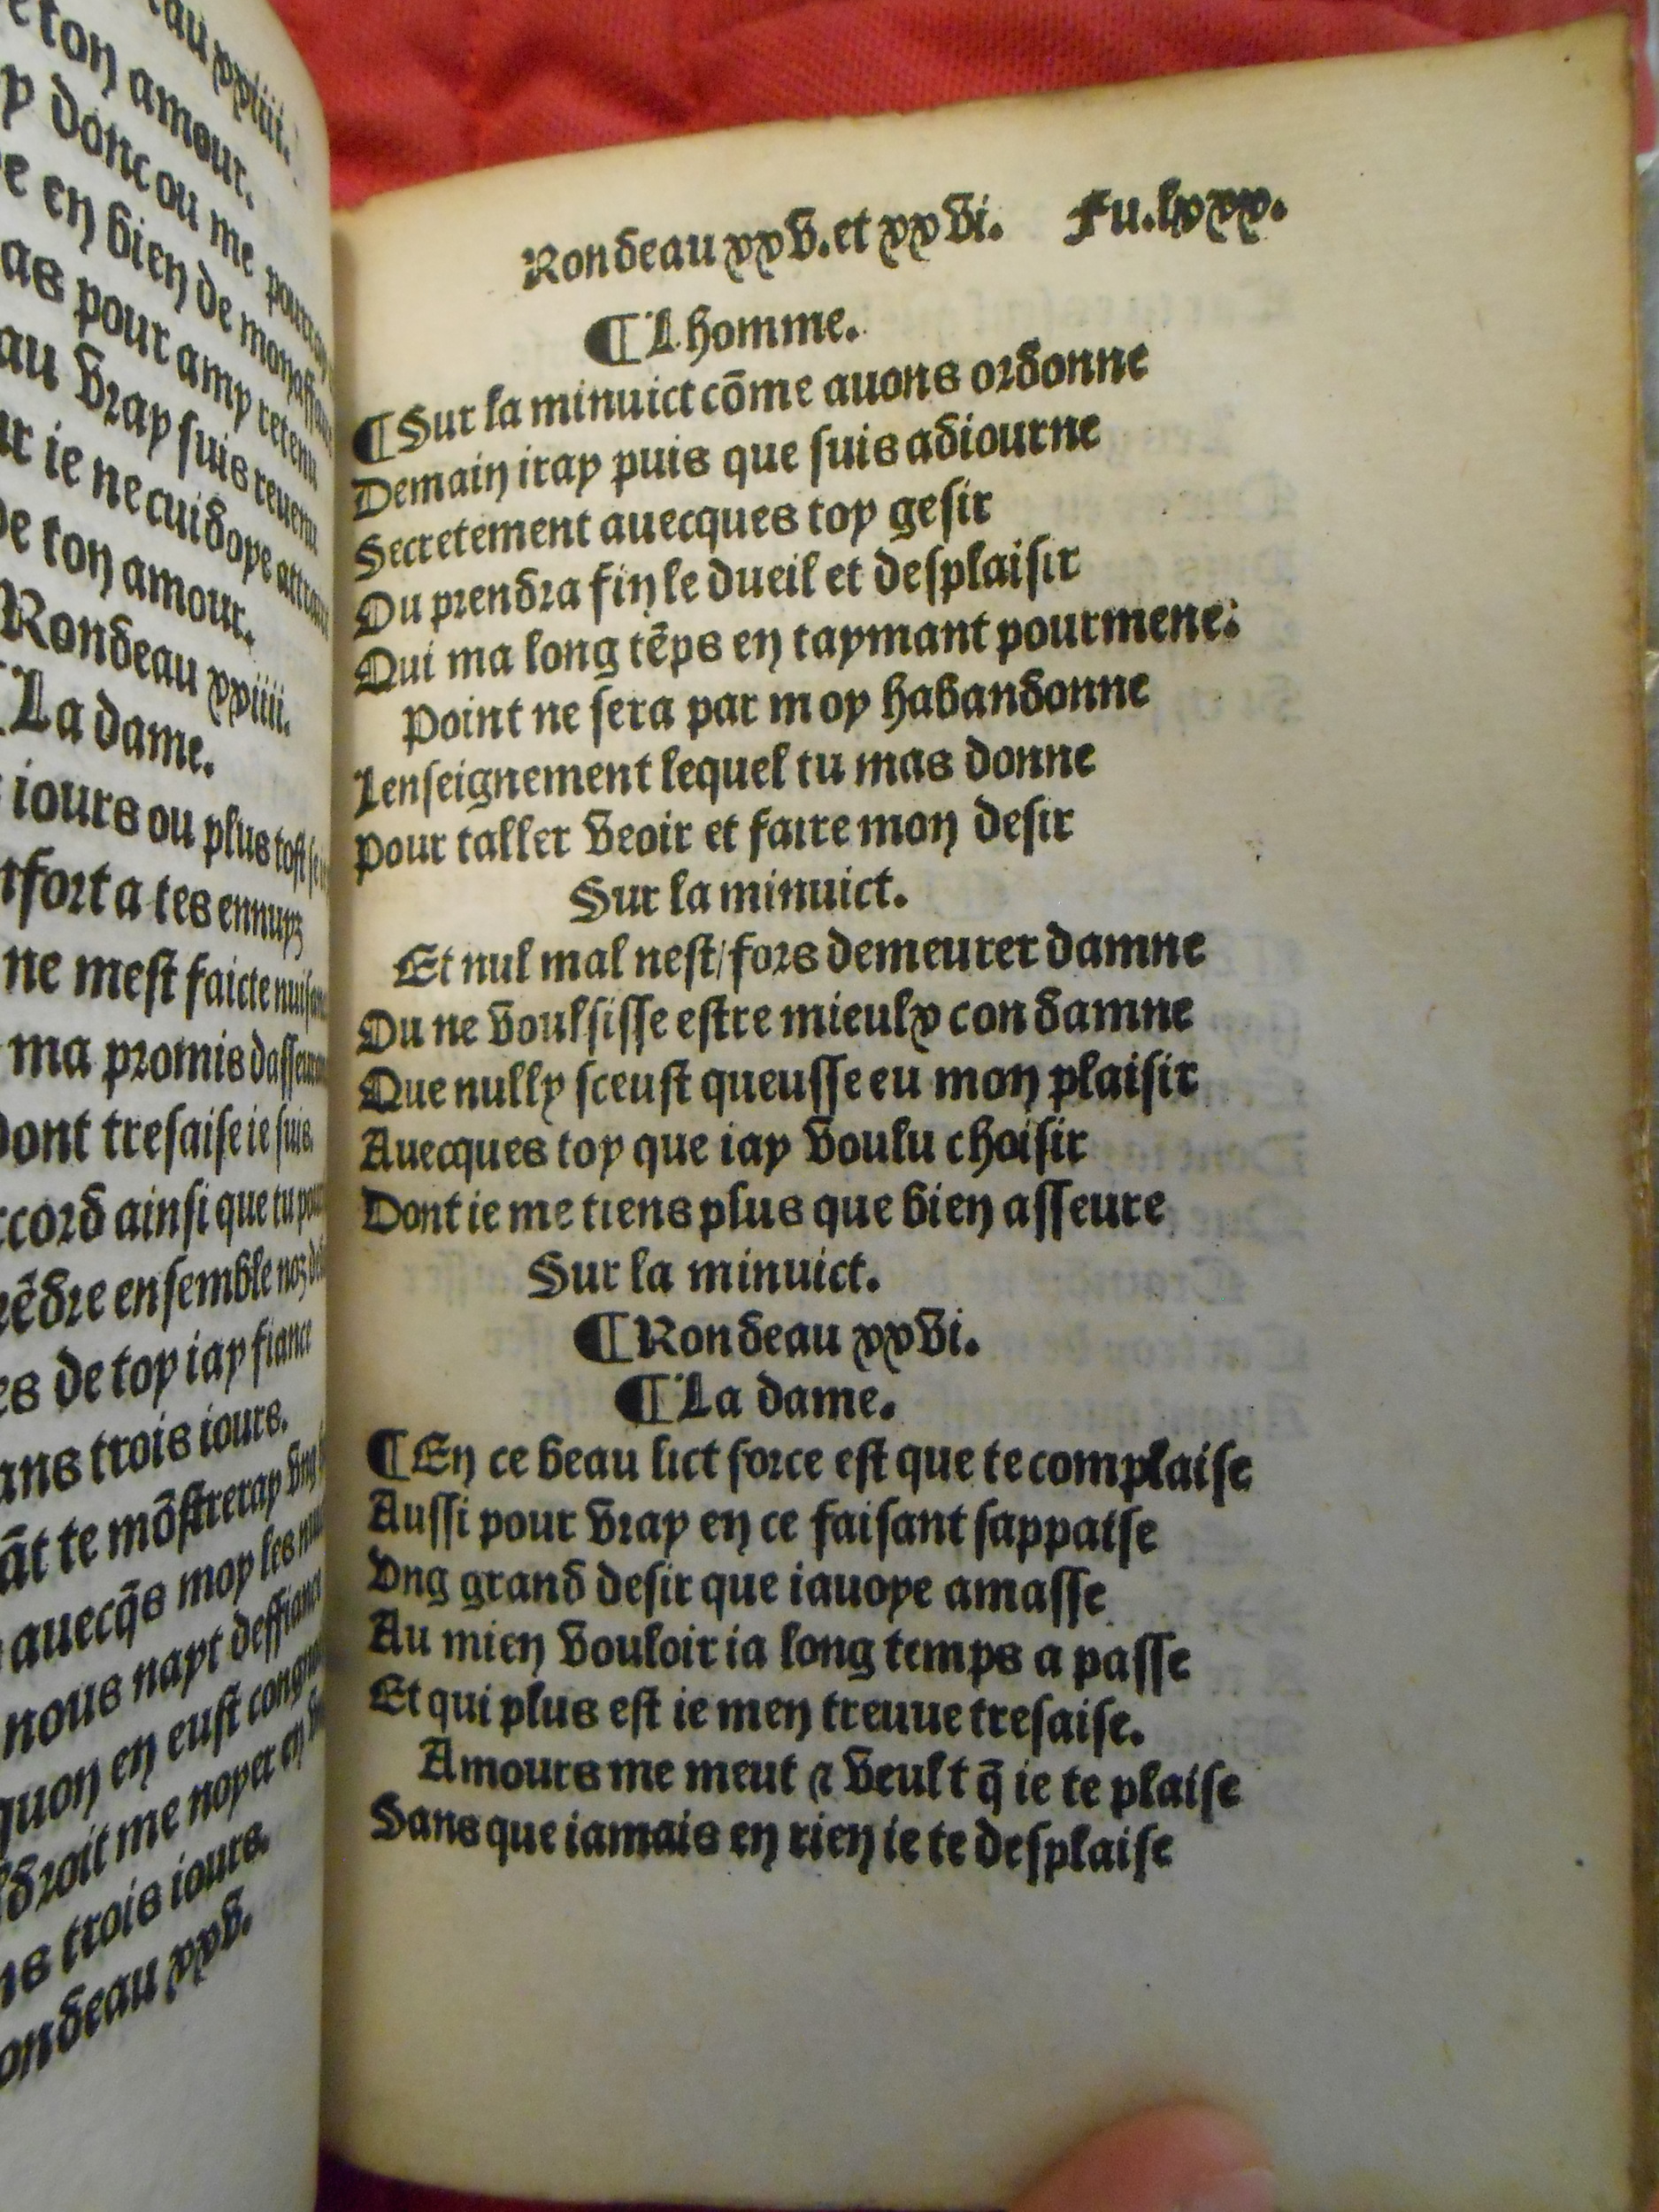 au xxiiii.
ton amour.
donc ou me
e en bien de
as pour amy retenu
au vray suis reuenu
ie ne cuidoye
de ton amour.
Rondeau xxiiii.
La dame.
iours ou plus tost
a tes ennuyz
ne mest faicte
ma promis
Dont tresaise ie suis.
ainsi que tu
ensemble noz
de toy iay fiance
trois iours.
te mõstreray vng
auecq̃s moy les
nous nayt deffiance
quon en eust
me noyer en
trois iours.
xxv.
Rondeau xxv. et xxvi. Fu. lxxx.
¶ Lhomme.
¶ Sur la minuict cõme auons ordonne
Demain iray puis que suis adiourne
Secretement auecques toy gesir
Ou prendra fin le dueil et desplaisir
Qui ma long tẽps en taymant pourmene:
Point ne sera par moy habandonne
Lenseignement lequel tu mas donne
Pour taller veoir et faire mon desir
Sur la minuict.
Et nul mal nest/ fors demeurer damne
Ou ne voulsisse estre mieulx condamne
Que nully sceust queusse eu mon plaisir
Auecques toy que iay voulu choisir
Dont ie me tiens plus que bien asseure
Sur la minuict.
¶ Rondeau xxvi.
¶ La dame.
¶ En ce beau lict force est que te complaise
Aussi pour vray en ce faisant sappaise
Vng grand desir que iauoye amasse
Au mien vouloir ia long temps a passe
Et qui plus est ie men treuue tresaise.
Amours me meut ⁊ veult q̃ ie te plaise
Sans que iamais en rien ie te desplaise